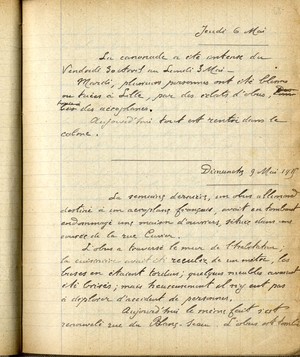 Jeudi 6 Mai
La canonade a été intense du
Vendredi 30 Avril au Lundi 3 Mai -
Mardi, plusieurs personnes ont été
ou tuées à Lille, par des éclats d'obus,
des aéroplanes.
Aujourd'hui tout est rentré dans le
calme.
Dimanche 9 Mai
La semaine dernière, un obus allemand
destiné à un aéroplane français, avait en tombant
endommagé une maison d'ouvriers, située dans une
de la rue Cuvier.
L'obus a traversé le mur de l'habitation;
la cuisinière avait été reculée de un mètre, les
buses en étaient tordues; quelques meubles avaient
été brisés; mais heureusement il n'y eut pas
à déplorer d'accident de personnes.
Aujourd'hui le même fait s'est
renouvelé rue du Blanc-Seau. L'obus est